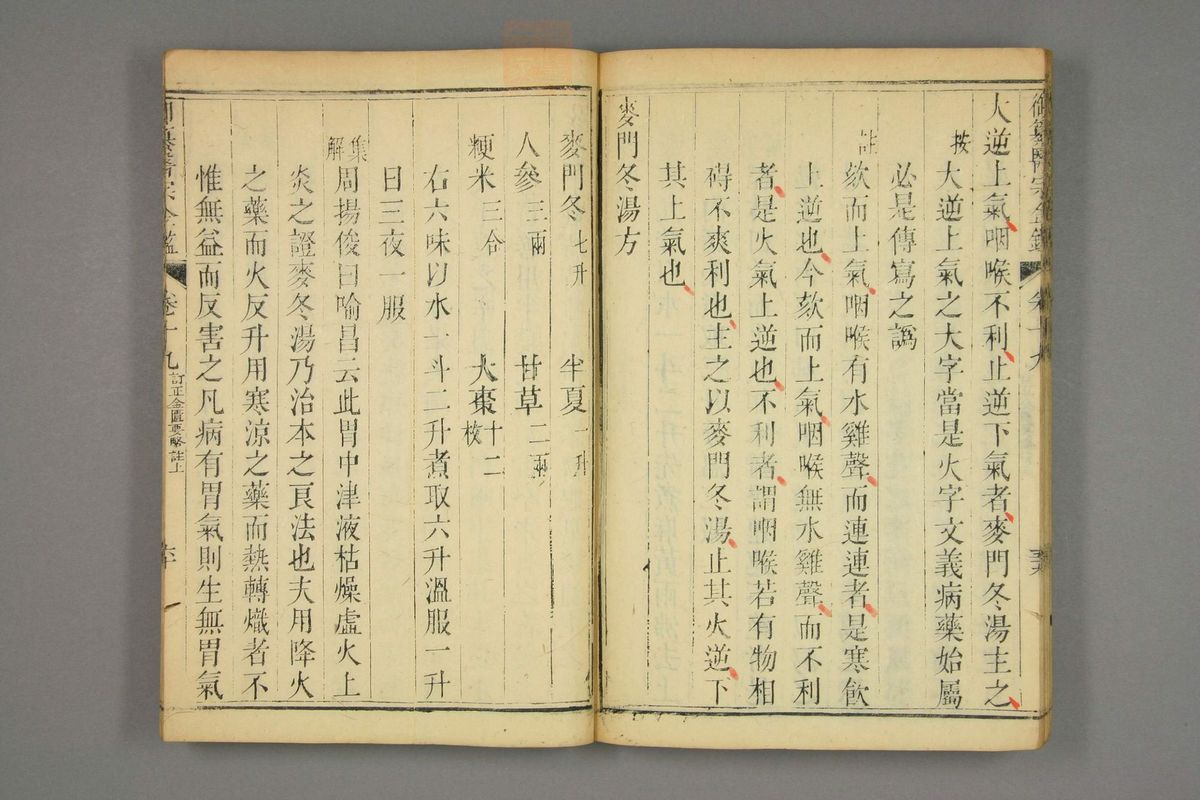 大逆上氣咽喉不利止逆下氣者麥門冬湯主之
按 大逆上氣之大字當是火字文義病藥始屬
必是傳寫之譌
註 欬而上氣咽喉有水雞聲而連連者是寒飲
上逆也今欬而上氣咽喉無水雞聲而不利
者是火氣上逆也不利者謂咽喉若有物相
碍不爽利也主之以麥門冬湯止其火逆下
其上氣也
麥門冬湯方
麥門冬七升 半夏一升
人參三兩 甘草二兩
粳米三合 大棗十二枚
右六味以水一斗二升煮取六升溫服一升
日三夜一服
集解 周揚俊曰喻昌云此胃中津液枯燥虛火上
炎之證麥冬湯乃治本之良法也夫用降火
之藥而火反升用寒涼之藥而熱轉熾者不
惟無益而反害之凡病有胃氣則生無胃氣
卷十九 訂正金匱要略註上 六十